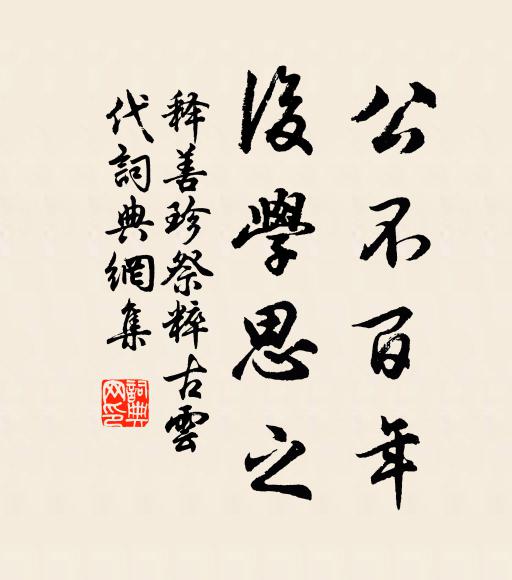 公不百年
後學思之
释善珍祭粹古雲
代詞典網集
詞典网印